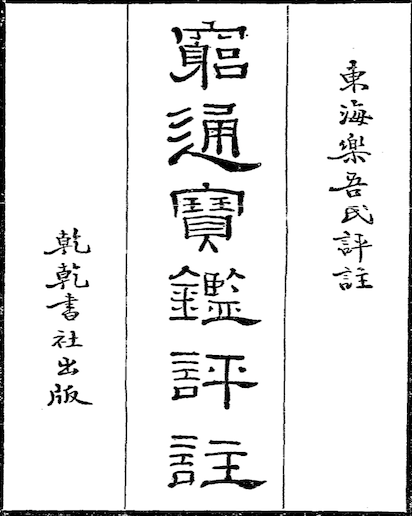 東海樂吾氏評註
窮通寶鑑評註
乾乾書社出版